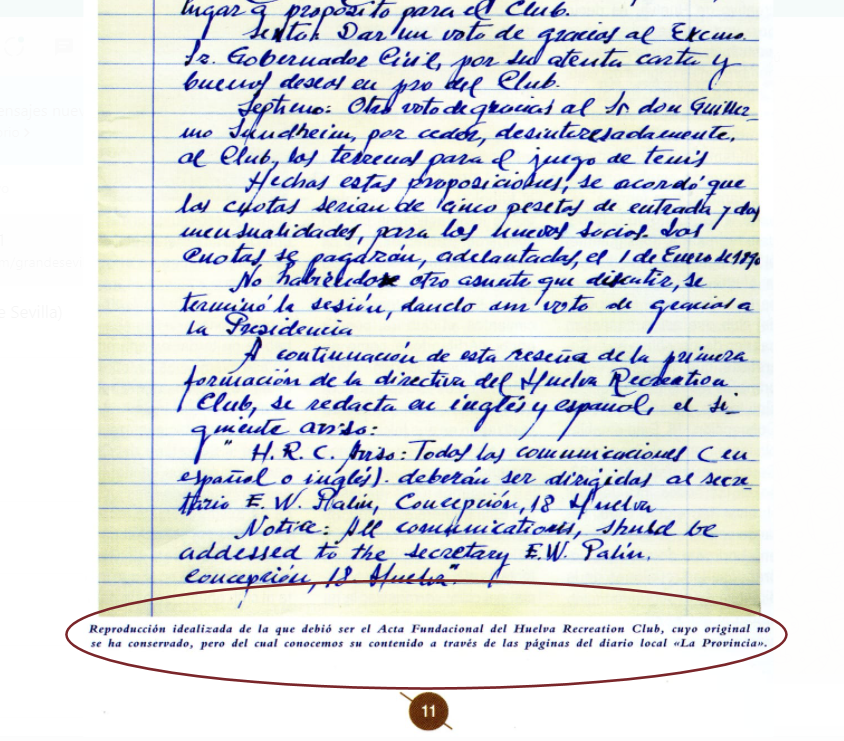 lugar a proposito para el Club.
Sexto: Dar un voto de gracias al Excmo.
Sr. Gobernador Civil, por su atenta carta y
buenos deseos en pro del Club.
Septimo: Otro voto de gracias al Sr don Guiller-
mo Sundheim, por ceder, desinteresadamente,
al Club, los terrenos para el juego de tenis
Hechas estas proposiciones, se acordó que
las cuotas serian de cinco pesetas de entrada y dos
mensualidades, para los nuevos socios. Las
cuotas se pagarán, adelantadas, el 1 de Enero de 1890
No habiendose otro asunto que discutir, se
terminó la sesión, dando un voto de gracias a
la Presidencia
A continuación de esta reseña de la primera
formación de la directiva del Huelva Recreation
Club, se redacta en inglés y español, el si-
guiente aviso:
" H. R. C. Aviso: Todas las comunicaciones (en
español o inglés). deberán ser dirigidas al secre-
tario E. W. Palin, Concepción, 18 Huelva
Notice: All comunications, should be
addessed to the secretary E.W. Palin.
Concepción, 18. Huelva".
Reproducción idealizada de la que debió ser el Acta Fundacional del Huelva Recreation Club, cuyo original no
se ha conservado, pero del cual conocemos su contenido a través de las páginas del diario local «La Provincia».
11